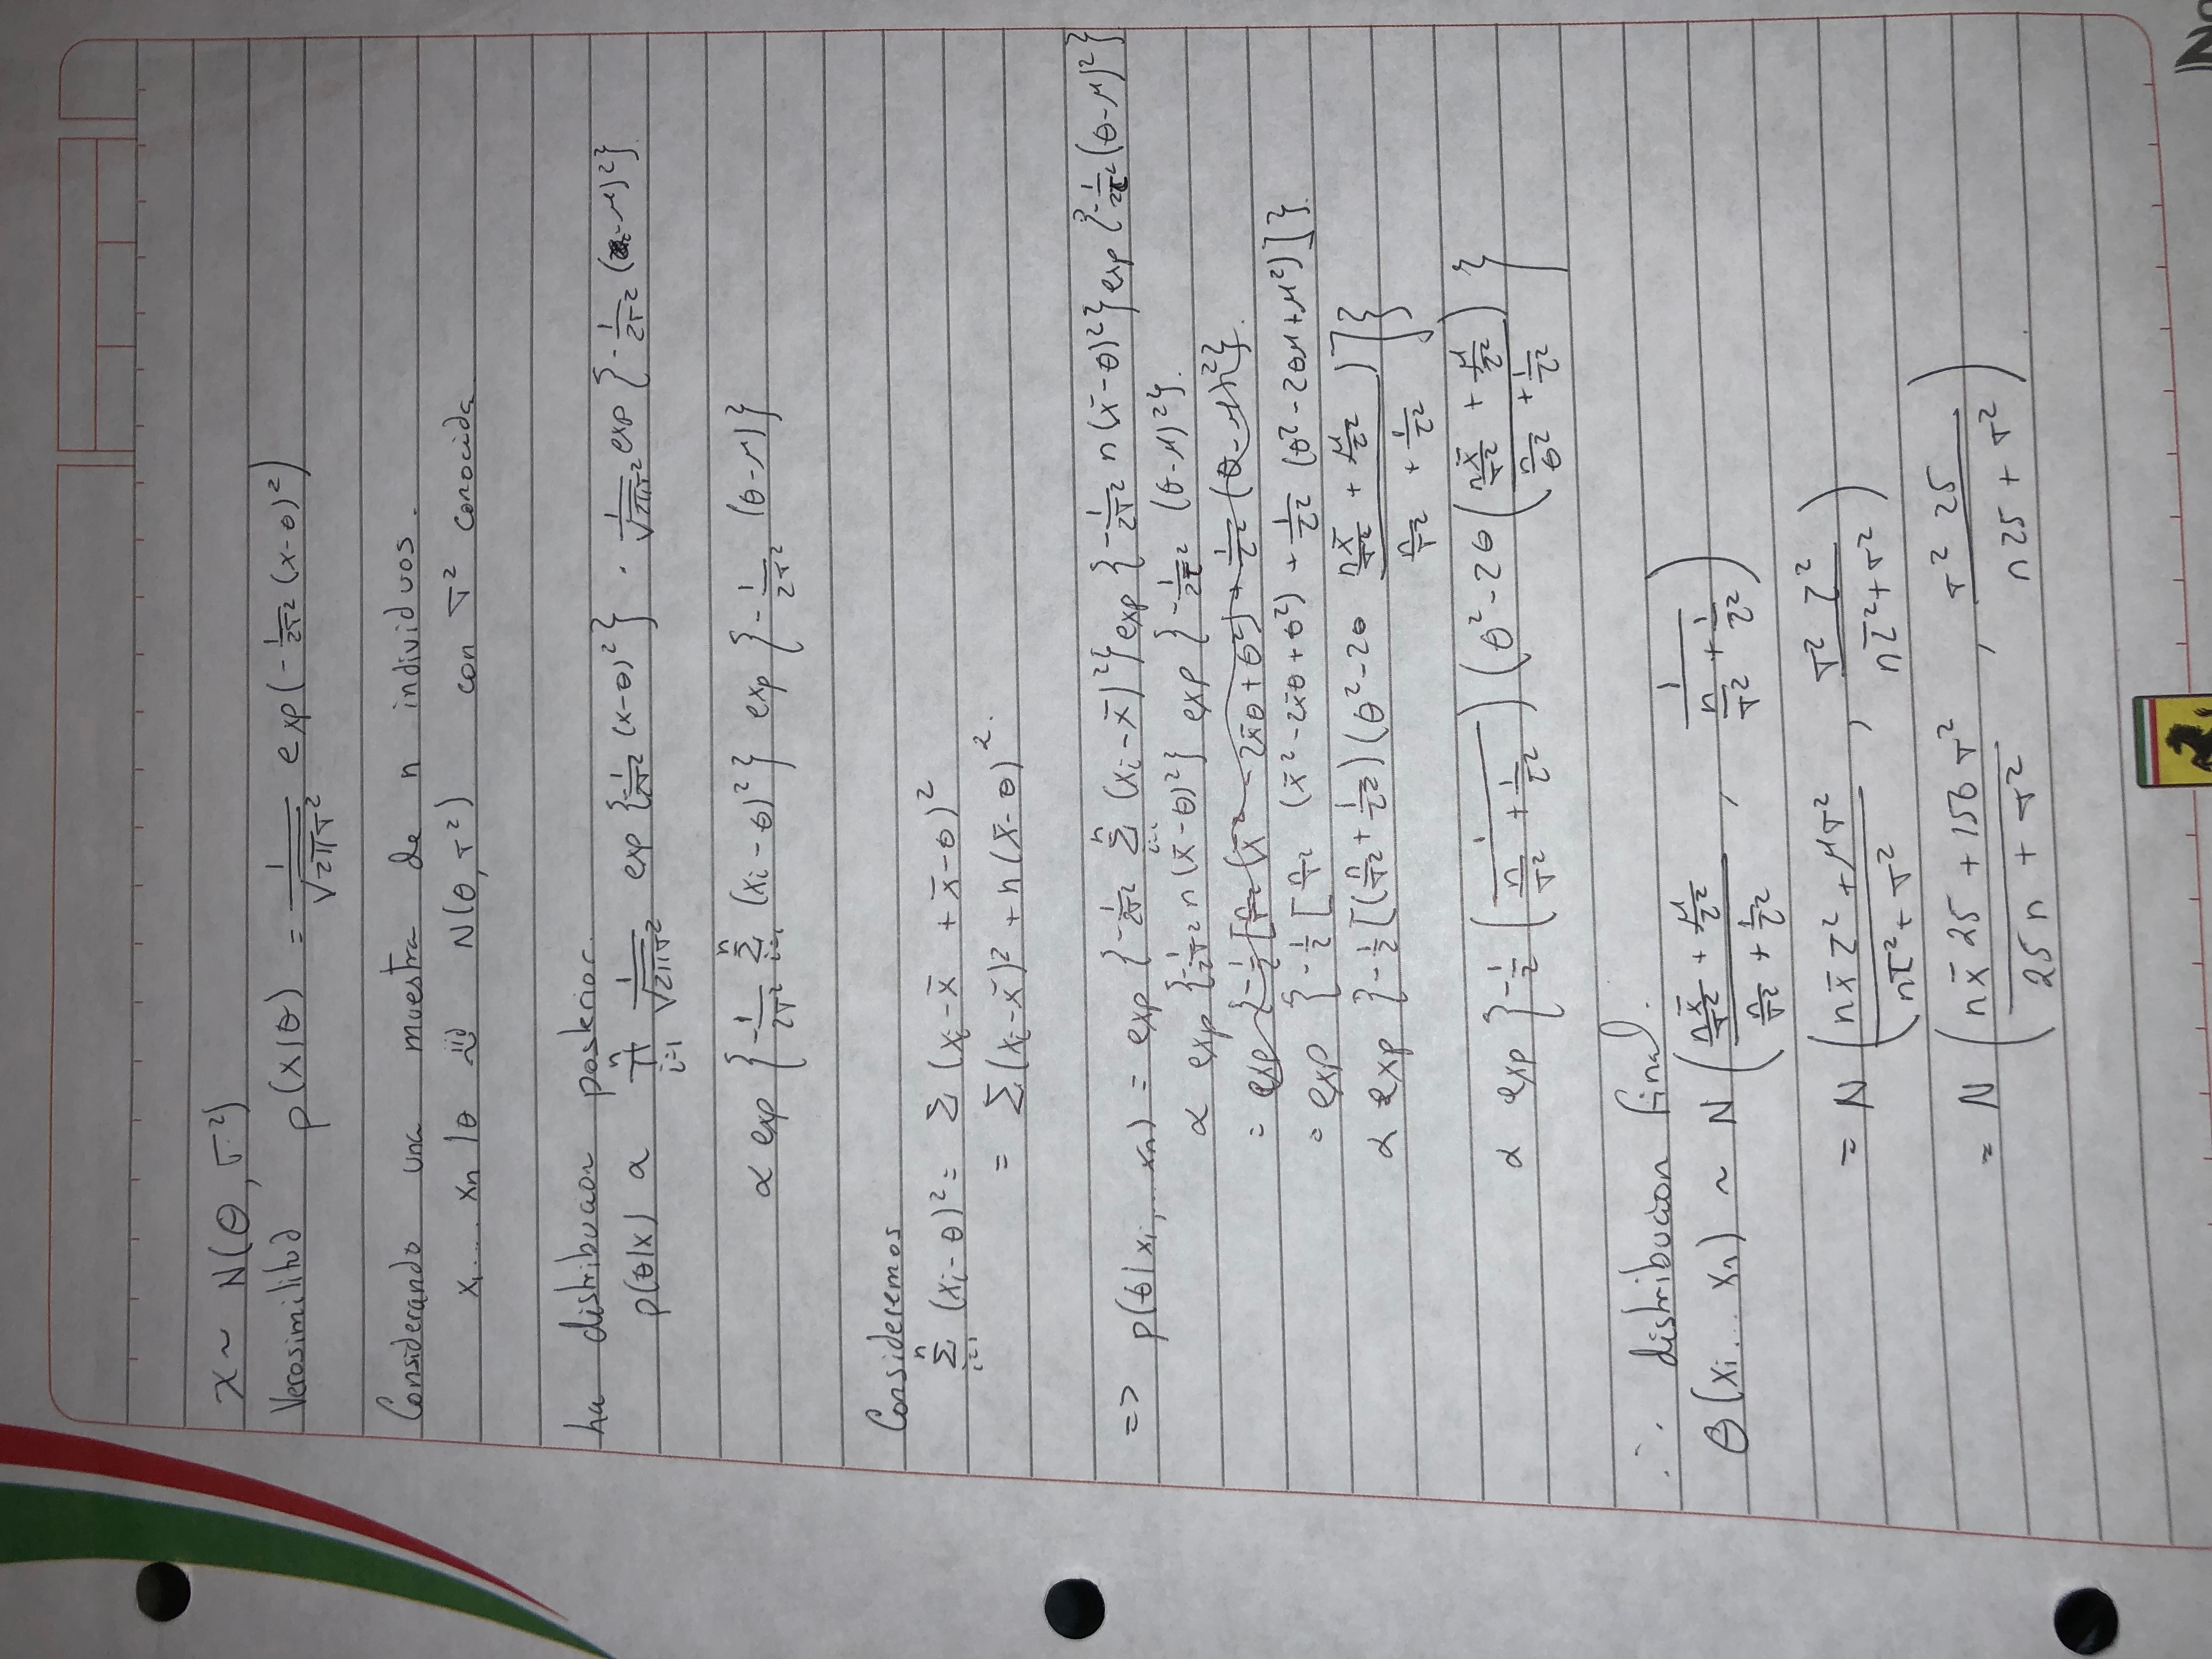 x ~ N(θ, σ²)
Verosimilitud p(x|θ) = 1/√(2πσ²) exp(-1/2σ² (x-θ)²)
Considerando una muestra de n individuos.
x₁.... xₙ |θ iid~ N(θ, σ²) con σ² conocida
La distribucion posterior.
p(θ|x) ∝ ∏ᵢ₌₁ⁿ 1/√(2πσ²) exp {-1/2σ² (x-θ)²} · 1/√(2πσ²) exp {-1/2σ² (θ-μ)²}
∝ exp {-1/2σ² Σᵢ₌₁ⁿ (xᵢ-θ)²} exp {-1/2σ² (θ-μ)}
Consideremos
Σᵢ₌₁ⁿ (xᵢ-θ)² = Σ (xᵢ-x̄ + x̄-θ)²
= Σ(xᵢ-x̄)² + n(x̄-θ)².
=> p(θ|xᵢ,... xₙ) = exp {-1/2σ² Σᵢ₌₁ⁿ (xᵢ-x̄)²} exp {-1/2σ² n(x̄-θ)²} exp {-1/2τ² (θ-μ)²}
∝ exp {-1/2σ² n(x̄-θ)²} exp {-1/2τ² (θ-μ)²}.
= exp {-1/2 [n/σ² (x̄² - 2x̄θ + θ²) + 1/τ² (θ-μ)²}.
= exp {-1/2 [n/σ² (x̄²-2x̄θ+θ²) + 1/τ² (θ²-2θμ+μ²)]}.
∝ exp {-1/2 [(n/σ² + 1/τ²)(θ²-2θ (nx̄/σ² + μ/τ²)/(n/σ² + 1/τ²))]}
∝ exp {-1/2 (1/(n/σ² + 1/τ²)) (θ²-2θ ((nx̄/σ² + μ/τ²)/(n/θ² + 1/τ²))}
∴ distribucion final.
θ(xᵢ... xₙ) ~ N ((nx̄/σ² + μ/τ²)/(n/σ² + 1/τ²), 1/(n/σ² + 1/τ²))
= N ((nx̄τ² + μσ²)/(nτ² + σ²), σ²τ²/(nτ²+σ²))
= N ((nx̄25 + 150σ²)/(25n + σ²), σ²25/(n25 + σ²)).